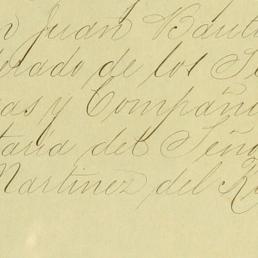 n Juan Bauti
derado de los Se
ras y Compañi
taria del Seño
Martinez del R